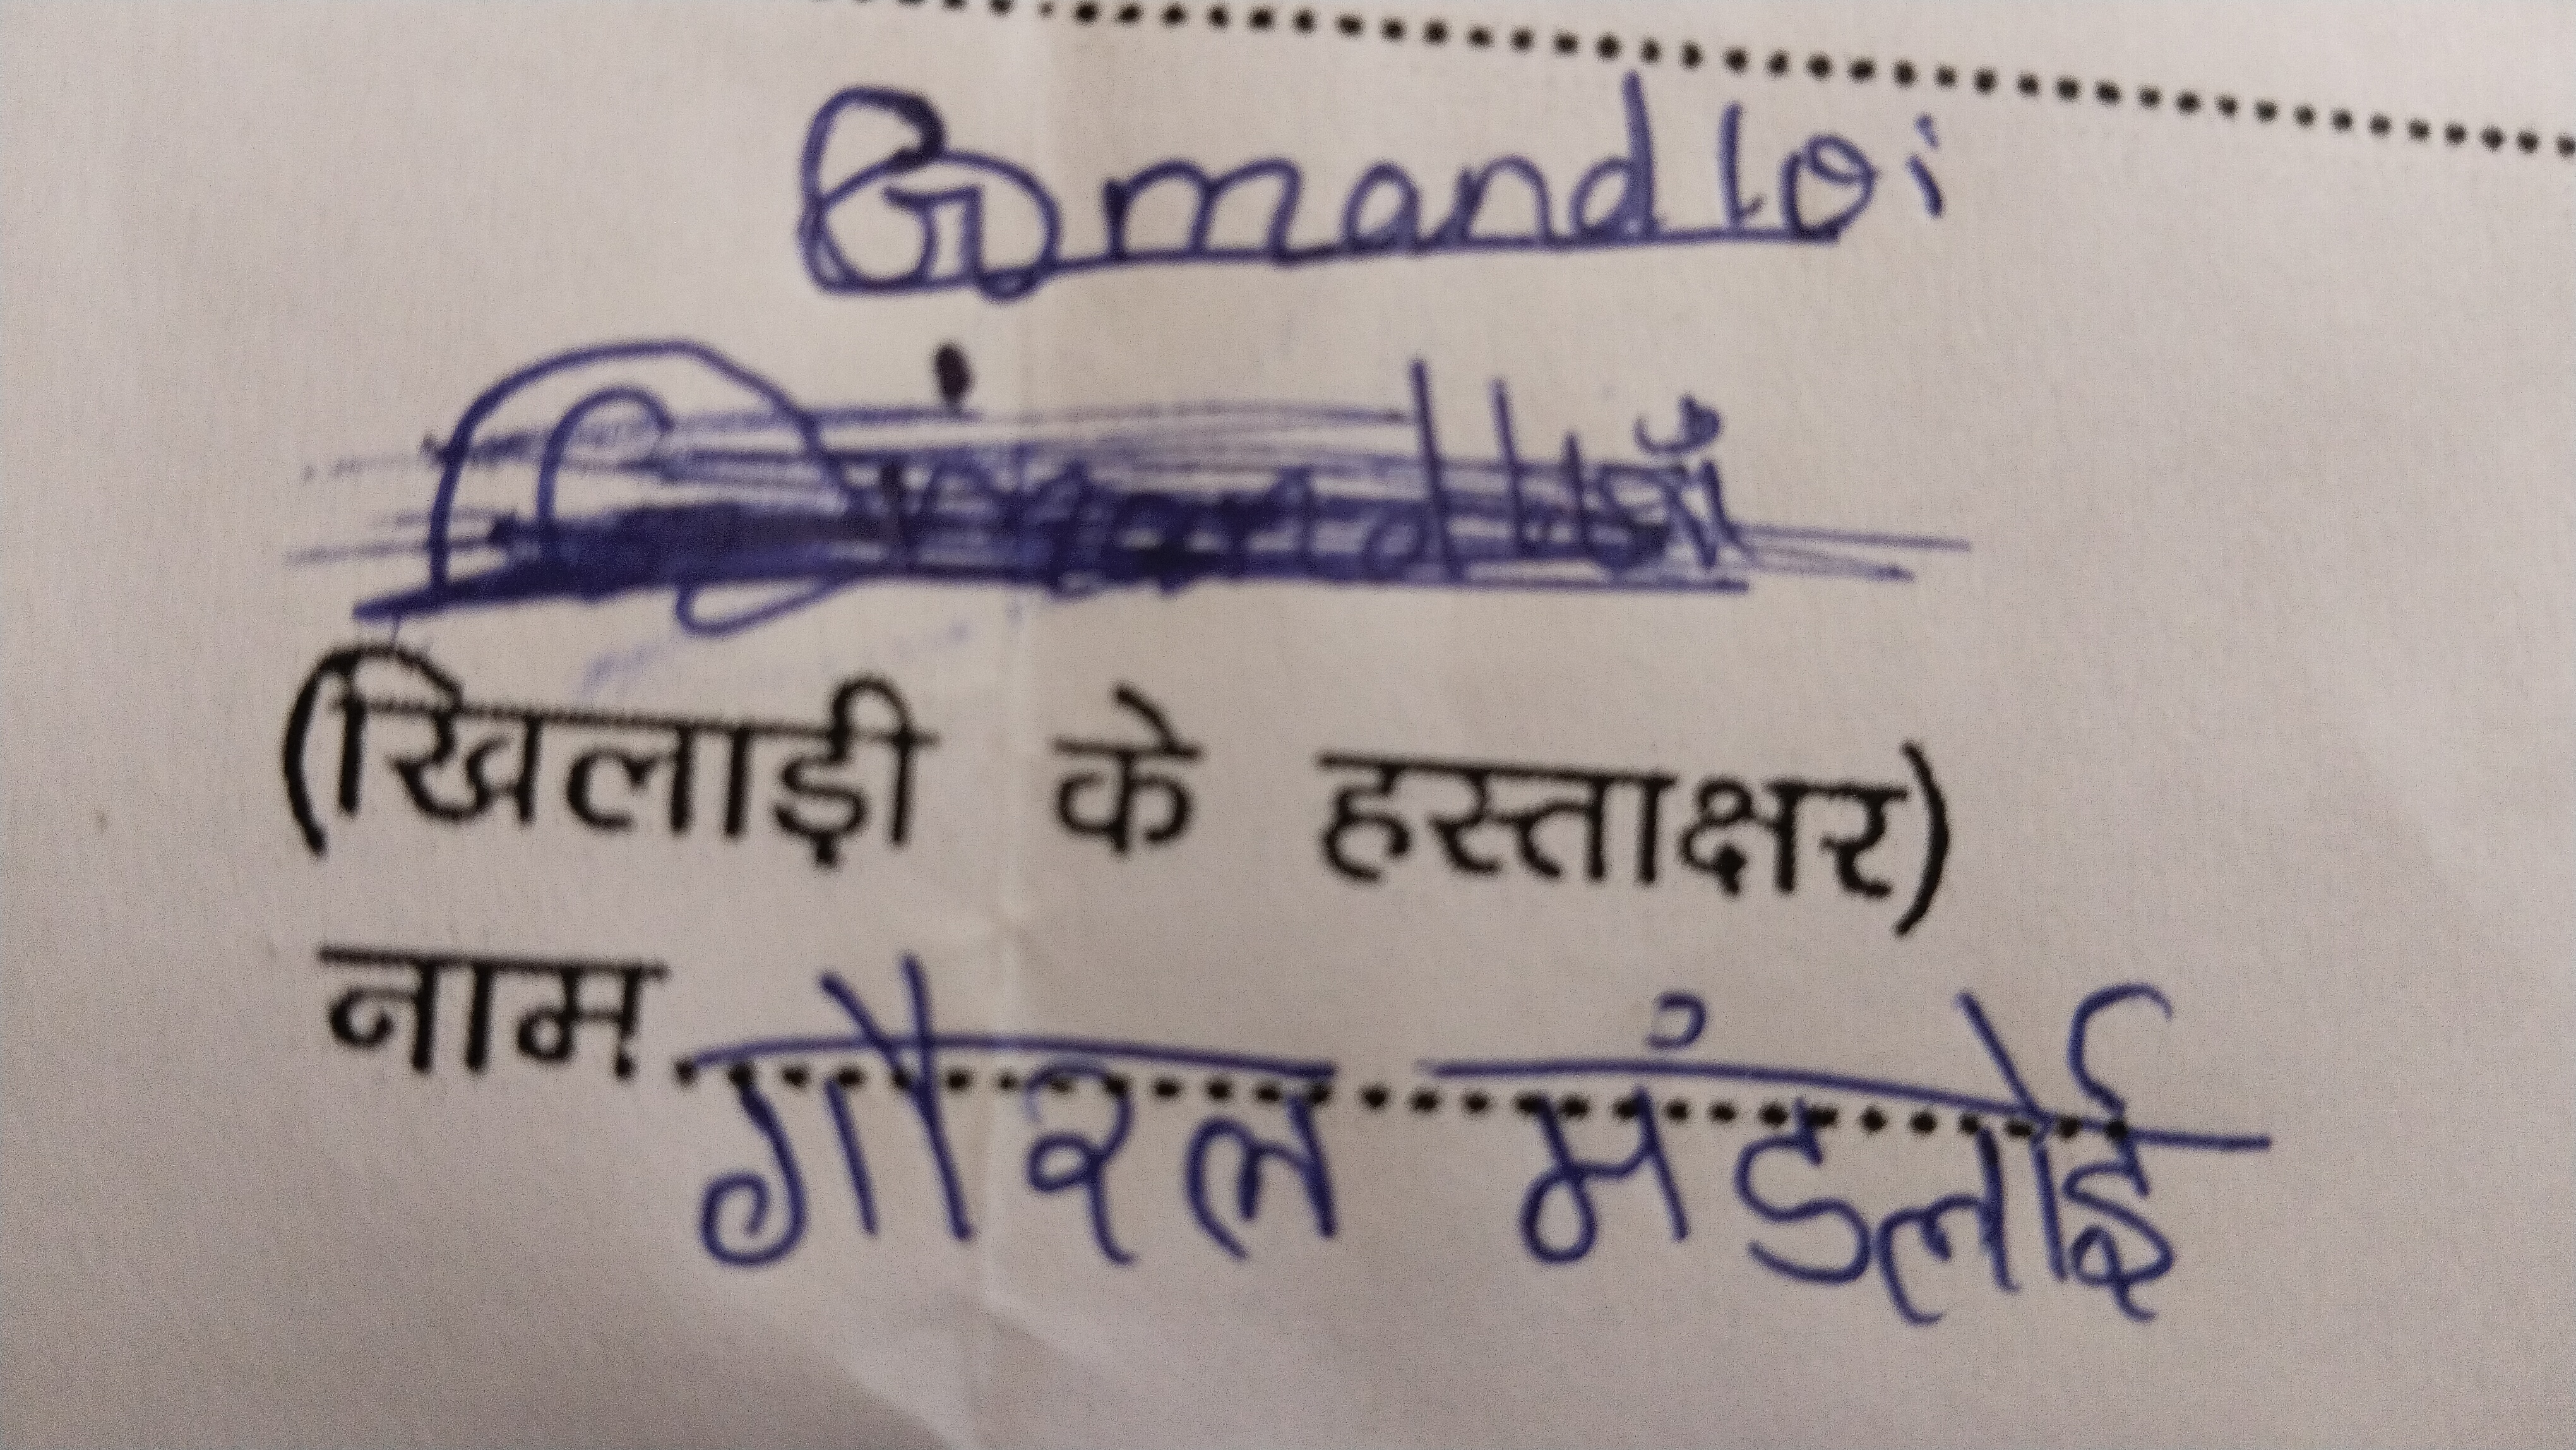 G mandloi
(खिलाड़ी के हस्ताक्षर)
नाम गौरल मंडलोई